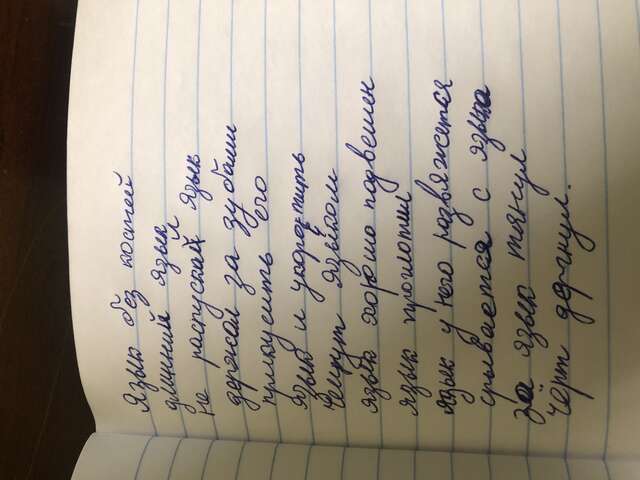 Язык без костей
длинный язык
не распускай язык
держал за зубами
прикусить его
язык и укоротить
чешут языком
язык хорошо подвешен
язык проглотил
язык у него развяжется
срывается с языка
за язык тянул
Чёрт дёргнул.